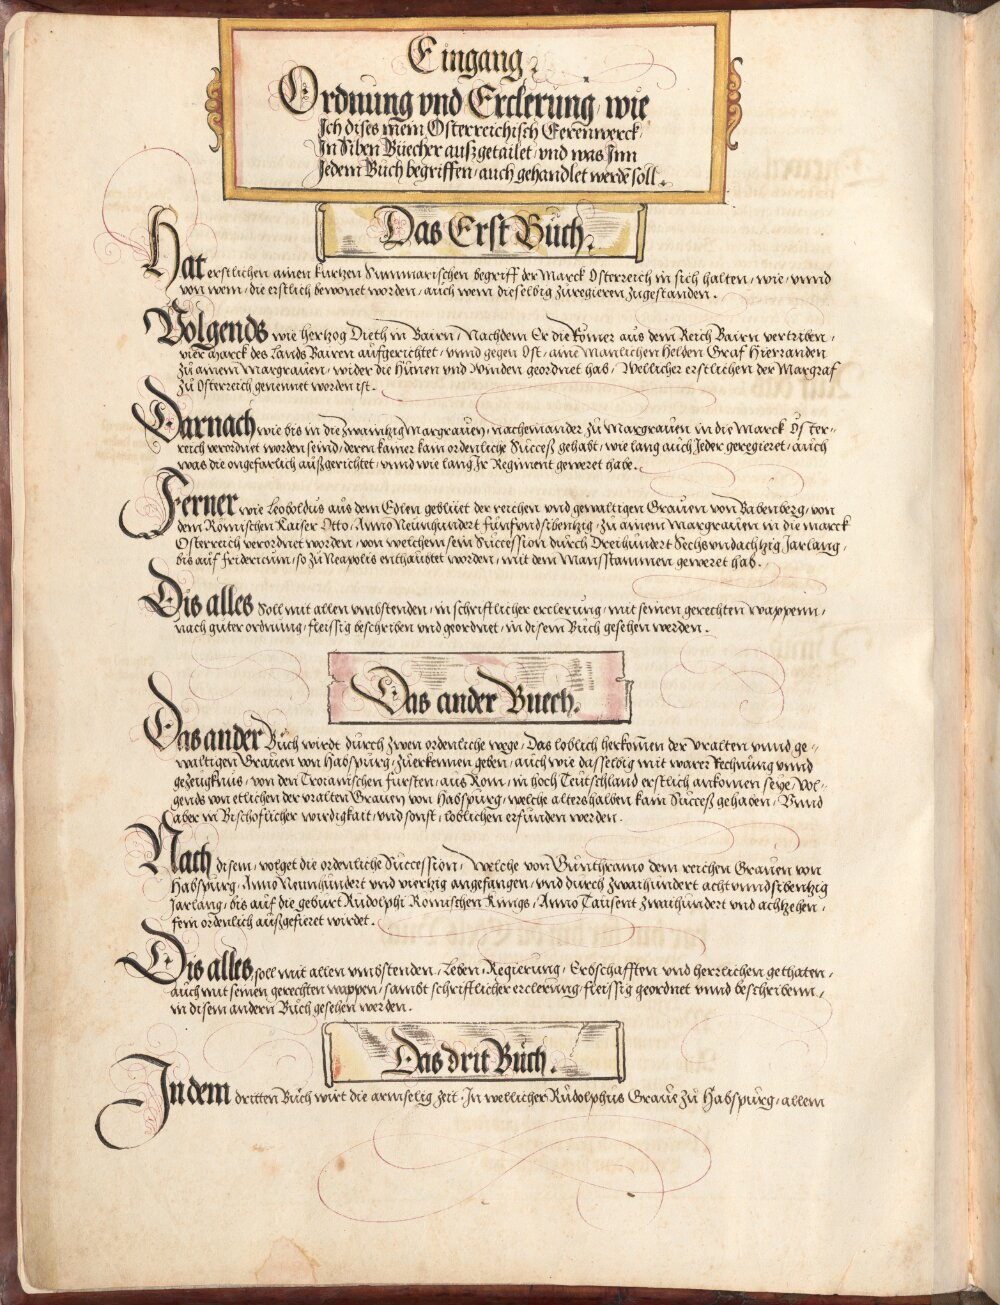 Eingang.
Ordnung vnd Erclerung, wie
Ich dises mein Österreichisch Eerenwerck,
In Siben Büecher auszgetailet, vnd was Inn
Jedem Buch begriffen, auch gehandlet werdē soll.
Das Erst Buch.
Hat erstlichen ainen kurtzen Summarischen begriff der Marck Osterreich in sich halten, wie, vnnd
von wem, die erstlich bewonet worden, auch wem dieselbig zuregieren zugestanden.
Volgends wie Hertzog Dieth in Bairn, Nachdem Er die Römer aus dem Reich Bairn vertriben,
vier Marck des Lands Bairen aufgerichtet, vnnd gegen Ost, aine Manlichen Helden Graf
zu ainem Margrauen, wider die Hunen vnd Winden geordnet hab, Wellicher erstlichen der Margraf
zu Osterreich genennet worden ist.
Darnach wie bis in die zwaintzig Margrauen, nacheinander zu Margrauen in die Marck Öster-
reich verordnet worden seind, deren kainer kain ordenliche Success gehabt, wie lang auch Jeder geregieret, auch
was die ongefarlich außgerichtet, vnnd wie lang Ir Regiment geweret habe.
Ferner wie Leopoldus aus dem Edlen geblüet der reichen vnd gewaltigen Grauen von Babenberg, von
dem Römischen Kaiser Otto, Anno Neunhundert fünfvndsibentzig, zu ainem Margrauen in die Marck
Osterreich verordnet worden, von welchem sein Succession durch Dreihundert Sechsvndachtzig Jarlang,
bis auf Fridericum, so zu Neapolis enthaubtet worden, mit dem Mansstammen geweret hab.
Dis alles Soll mit allen vmbstenden, in schriftlicher erclerung, mit seinen gerechten wappenn,
nach guter ordnung, fleissig beschriben vnd geordnet, in disem Buch gesehen werden.
Das ander Buech.
Das ander Buch wirdt durch zwen ordenliche wege, Das loblich herkomen der vralten vnnd ge-
waltigen Grauen von Habspurg, zuerkennen geben, auch wie dasselbig mit warer Rechnung vnnd
gezeugknus, von den Troianischen fursten, aus Rom, in hoch Teutschland erstlich ankomen seye, Vol-
gends von etlichen der vralten Grauen von Habspurg, welche altershalben kain Success gehaben, Vnnd
aber in Bischoflicher wirdigkait, vnd sonst, loblichen erfunden werden.
Nach disem, volget die ordenliche Succession, Welche von Gunthramo dem reichen Grauen von
Habspurg, Anno Neunhundert vnd viertzig angefangen, vnd durch zwaihundert acht vnndsibentzig
Jarlang, bis auf die geburt Rudolphi Romischen Kungs, Anno Tausent zwaihundert vnd achtzehen,
fein ordenlich außgefieret wirdet.
Dis alles soll mit allen vmbstenden, Leben, Regierung, Erbschafften vnd herrlichen gethaten,
auch mit seinen gerechten wappen, sambt schriftlicher erclerung, fleissig geordnet vnnd beschribenn,
in disem andern Buch gesehen werden.
Das drit Buch.
In dem dritten Buch wirt die armselig zeit, In wellicher Rudolphus Graue zu Habspurg, allem